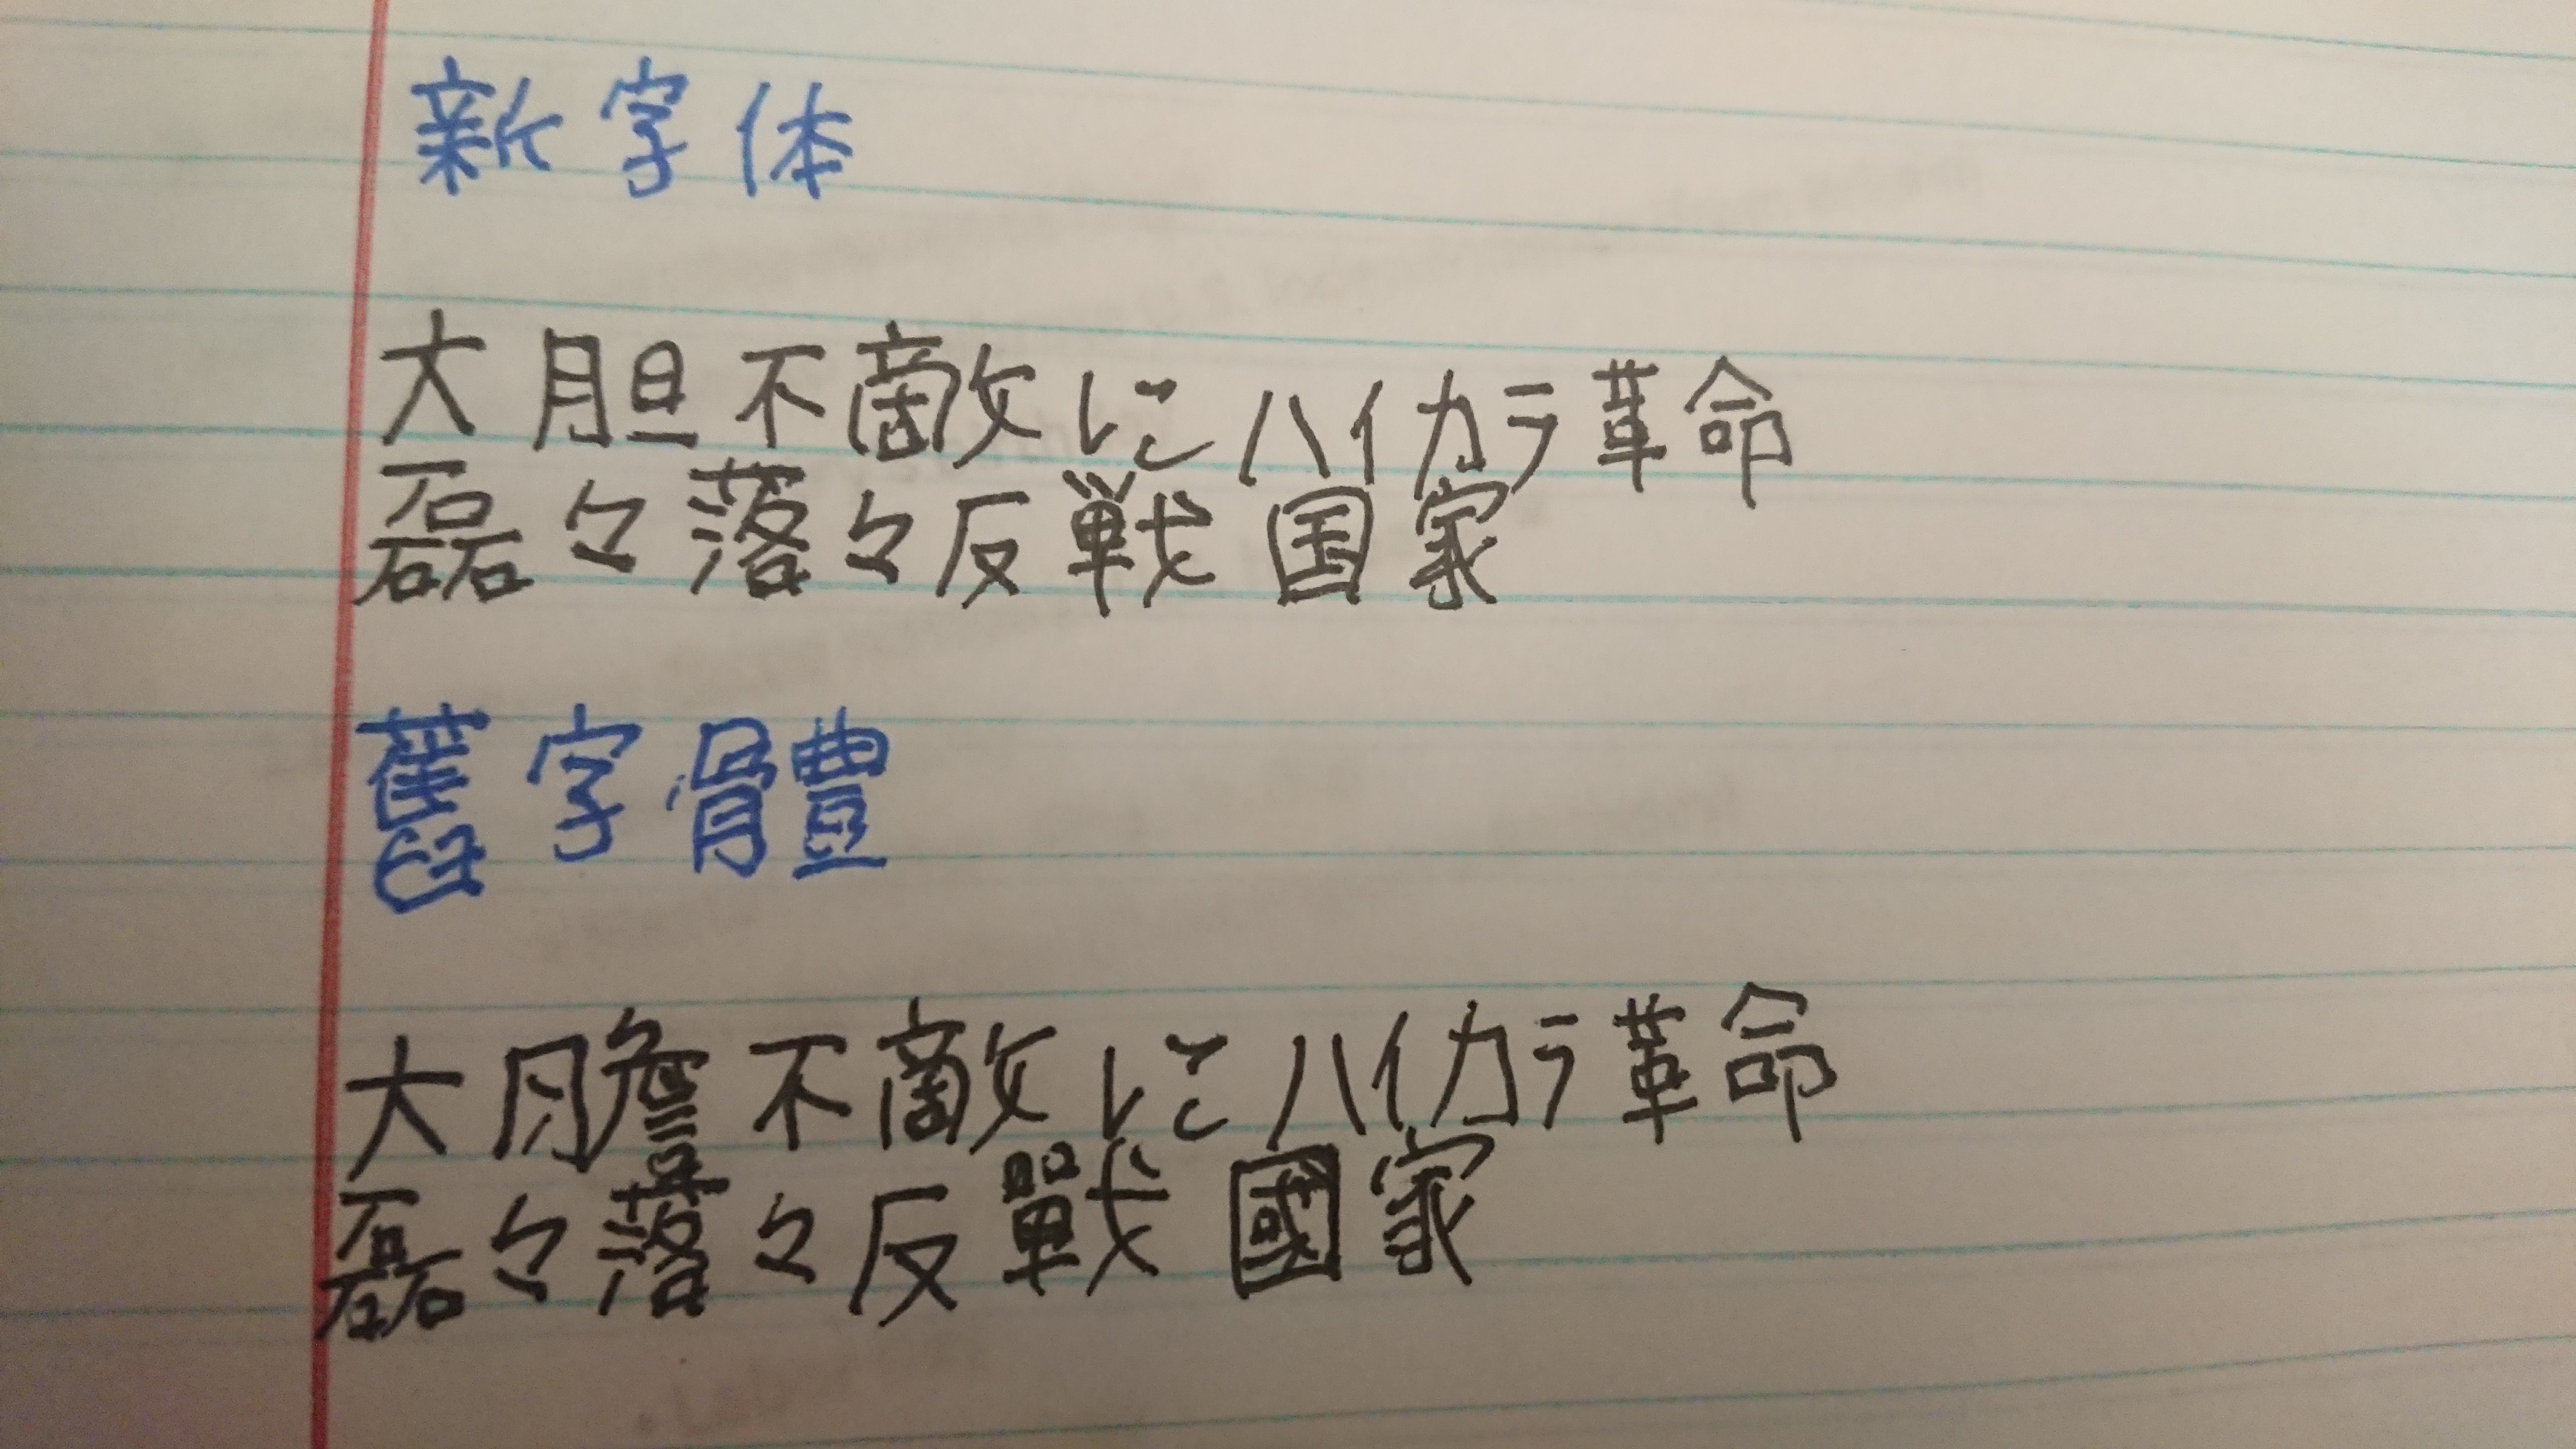 新字体
大胆不敵にハイカラ革命
磊々落々反戦国家
舊字體
大膽不敵にハイカラ革命
磊々落々反戰國家